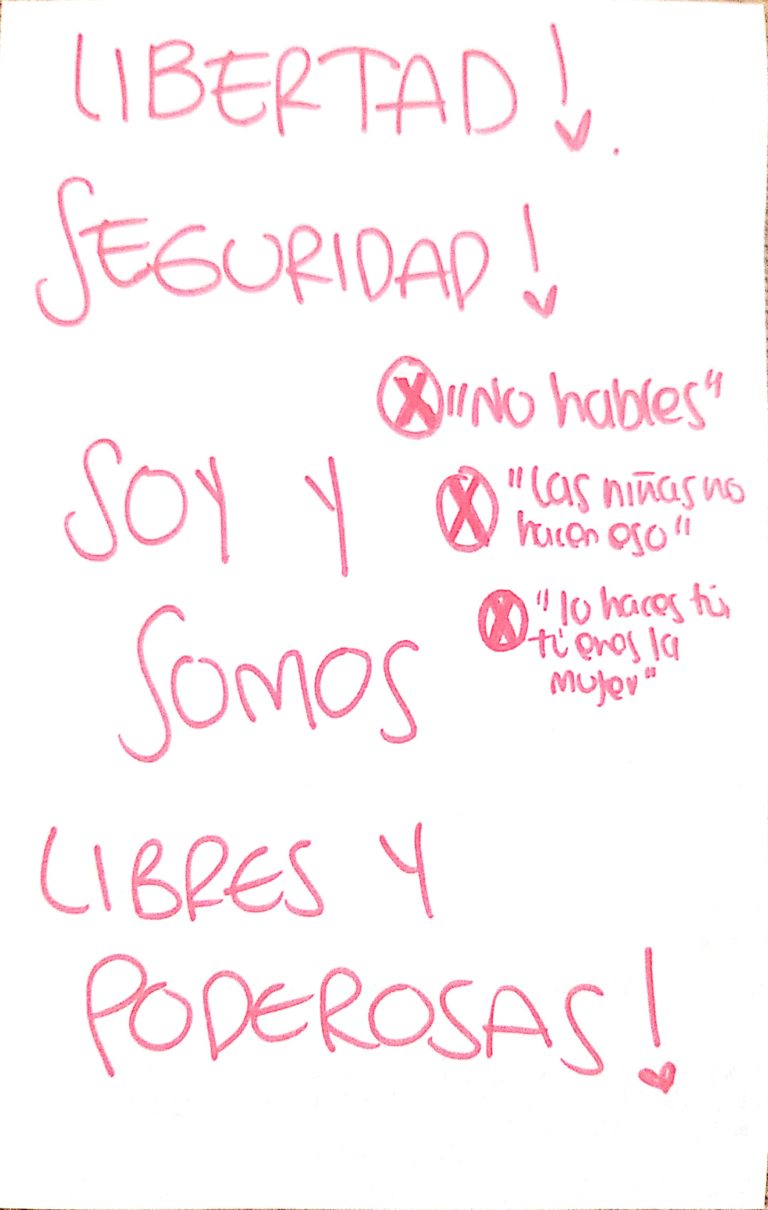 LIBERTAD!
SEGURIDAD!
X "No hables"
X "Las niñas no
hacen eso"
X "lo haces tú,
tú eres la
mujer"
SOY Y
SOMOS
LIBRES Y
PODEROSAS!